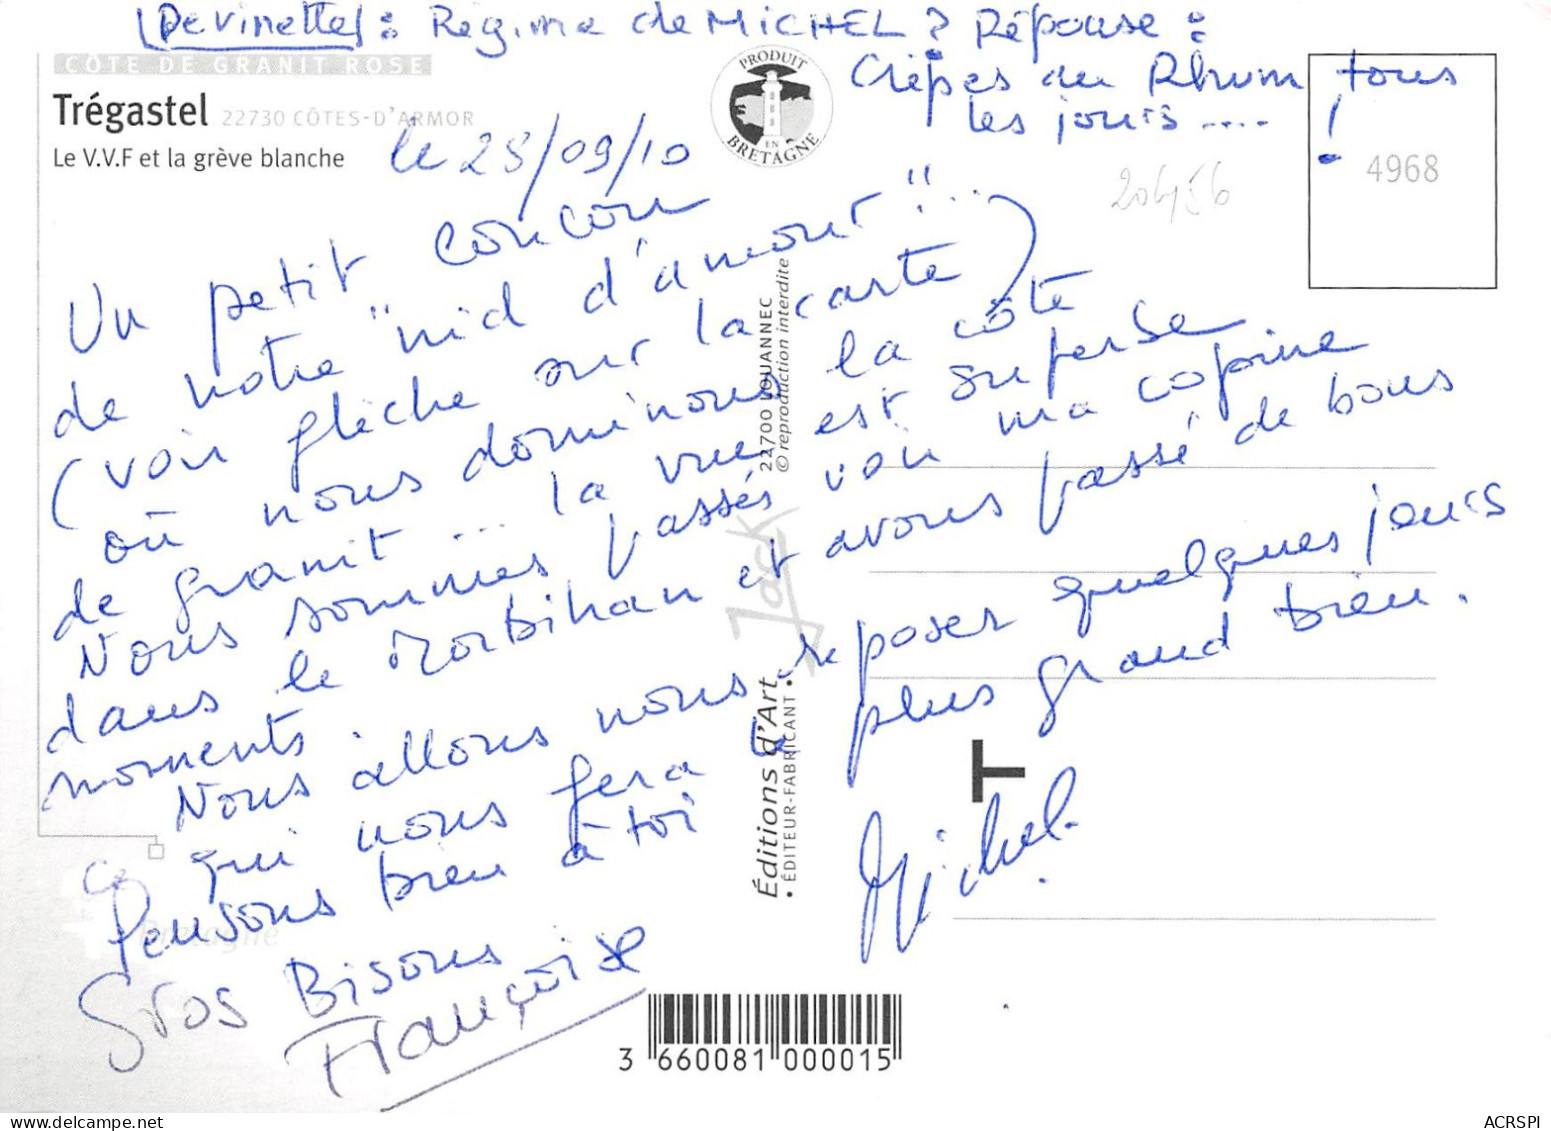 Devinette : Régime de MICHEL ? Réponse :
Crêpes au Rhum tous
les jours .... !
CÔTE DE GRANIT ROSE
Trégastel 22730 CÔTES-D'ARMOR
Le V.V.F et la grève blanche
PRODUIT EN BRETAGNE
4968
20456
le 25/09/10
Un petit coucou
de notre "nid d'amour"...
(voir flèche sur la carte)
où nous dominons la côte
de granit ... la vue est superbe
Nous sommes passés voir ma copine
dans le Morbihan et avons passé de bons
moments
Nous allons nous reposer quelques jours
ce qui nous fera le plus grand bien.
Pensons bien à toi
Gros Bisous
Françoise
Michel
Bretagne
22700 LOUANNEC
© reproduction interdite
Jack
Éditions d'Art
• ÉDITEUR-FABRICANT •
3 660081 000015
ACRSPI